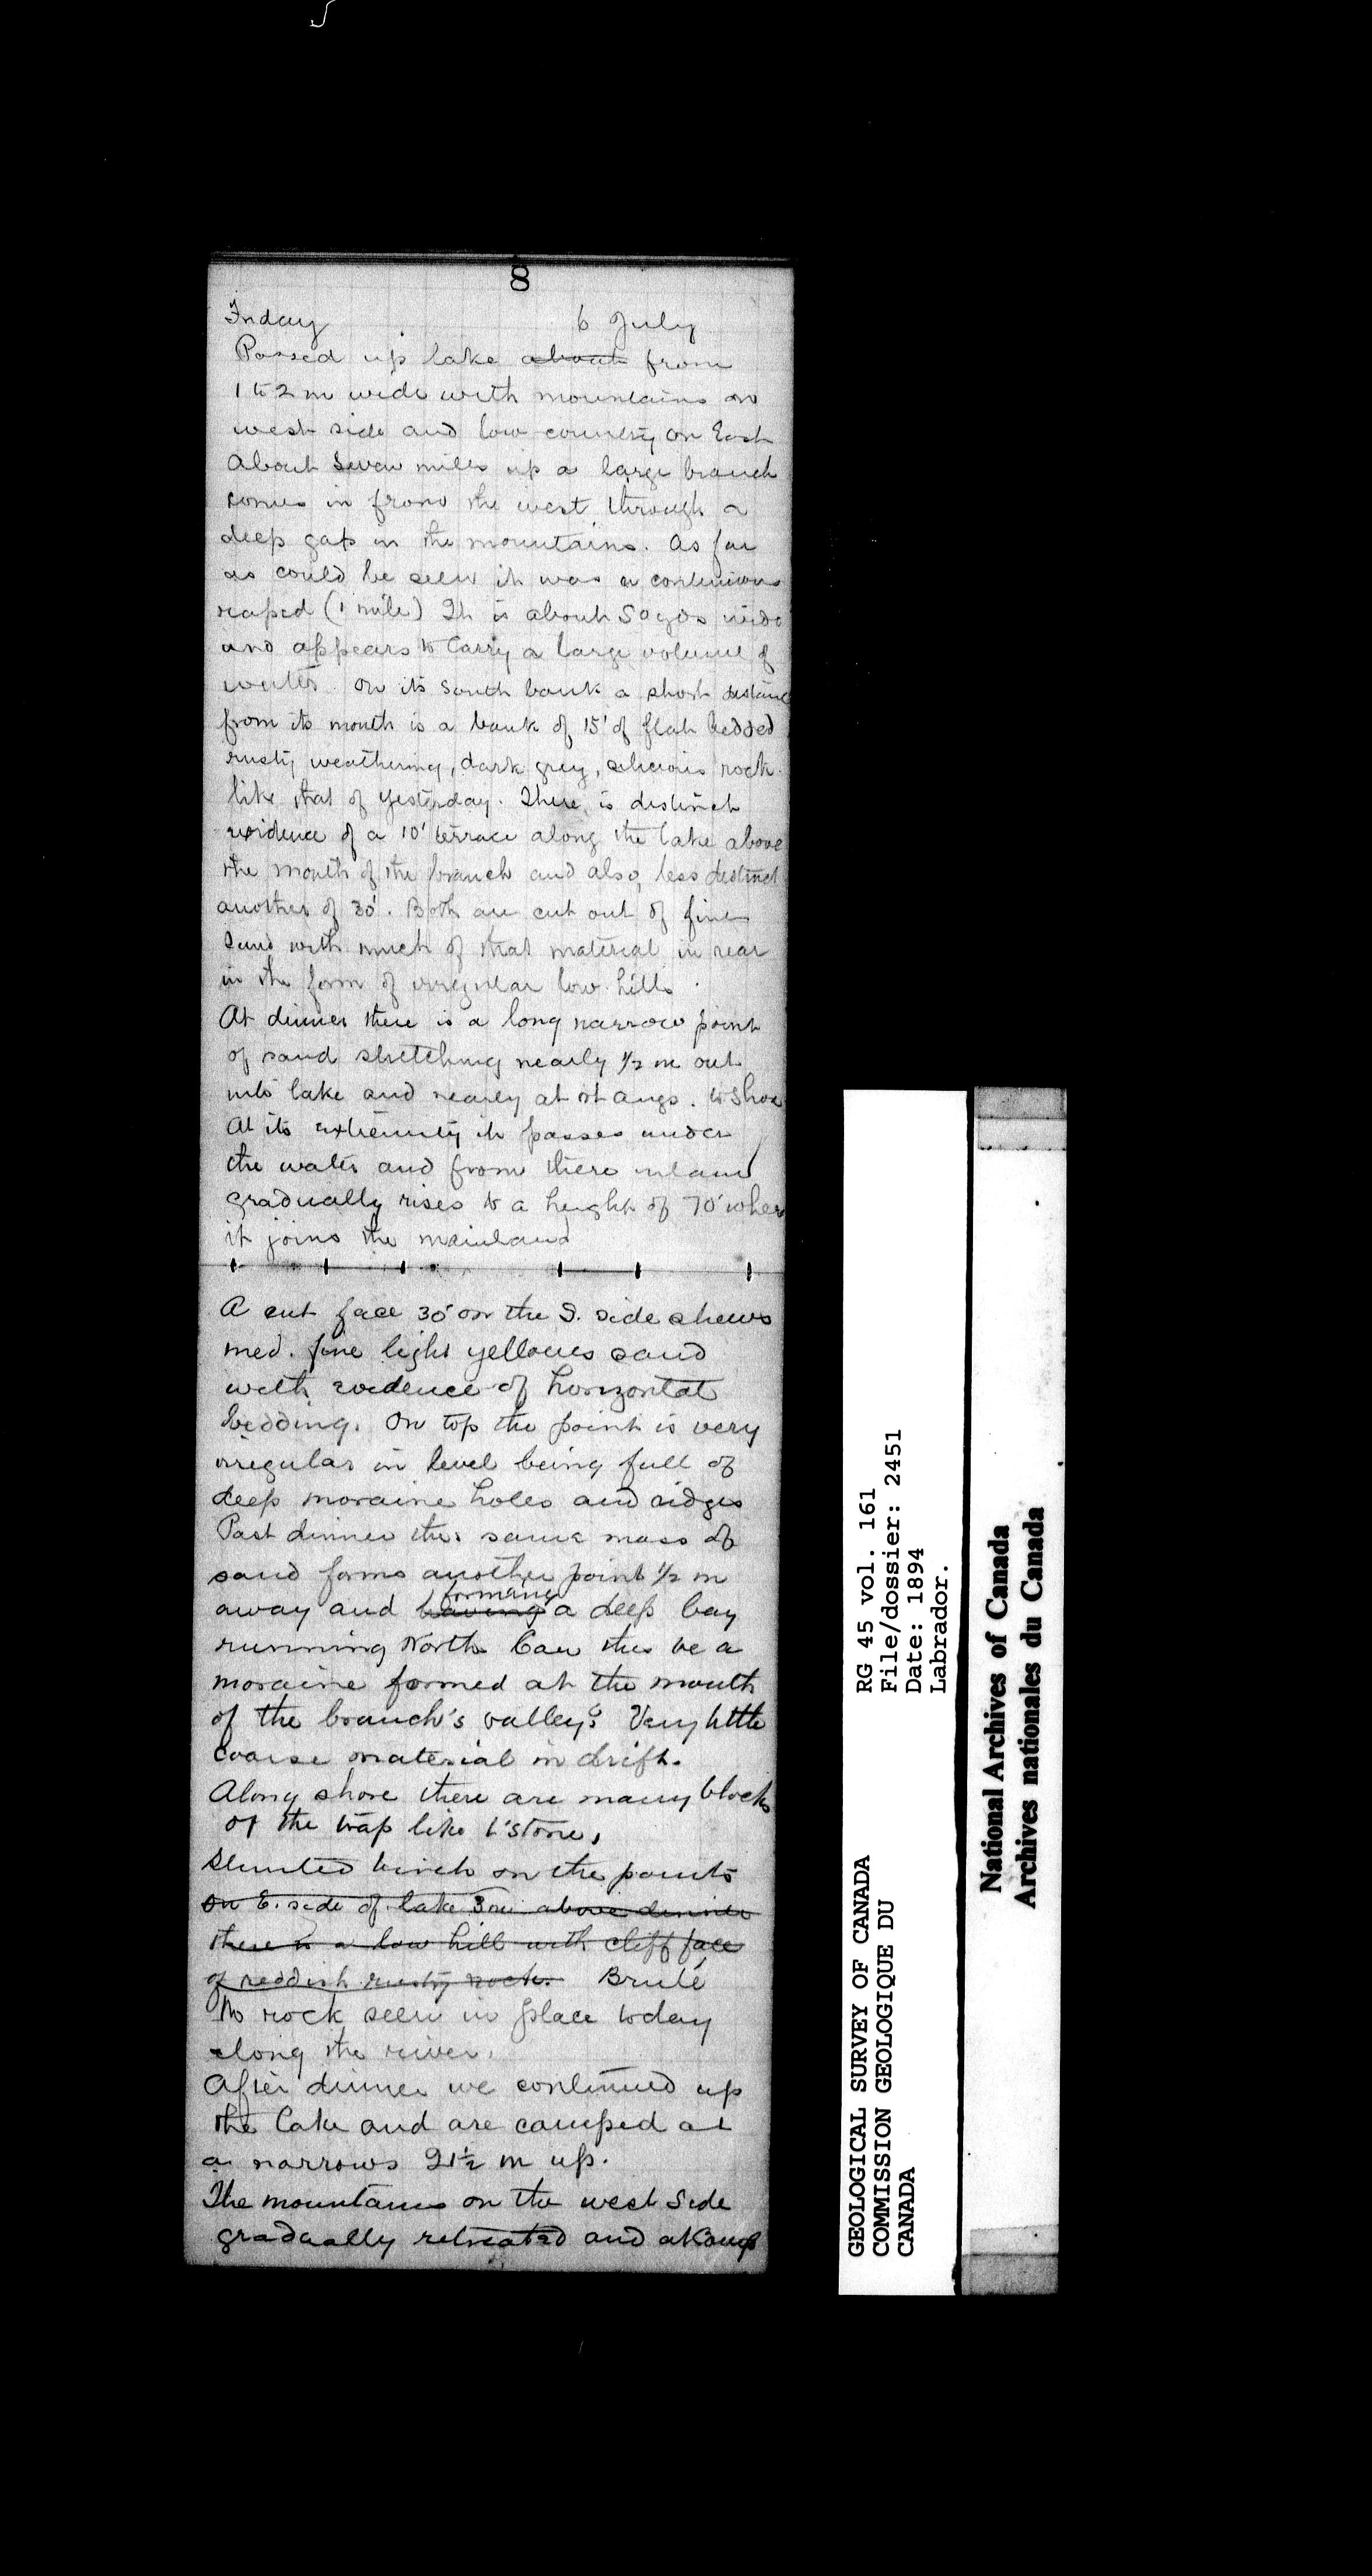 8
Friday 6 July
Passed up lake about from
1 to 2 m wide with mountains on
west side and low country on East
About Seven miles up a large branch
comes in from the west through a
deep gap in the mountains. As far
as could be seen it was a continuous
rapid (1 mile) It is about 50 yds wide
and appears to Carry a large volume of
water. On its South bank a short distance
from its mouth is a bank of 15' of flat bedded
rusty weathering, dark grey, silicious rock
like that of yesterday. There is distinct
evidence of a 10' terrace along the lake above
the mouth of the branch and also, less distinct
another of 30'. Both are cut out of fine
Sand with much of that material in rear
in the form of irregular low hills.
At dinner there is a long narrow point
of sand stretching nearly ½ m out
into lake and nearly at rt angs. to shore
At its extremity it passes under
the water and from there inland
gradually rises to a height of 70' where
it joins the mainland
A cut face 30' on the S. side shews
med. fine light yellow sand
with evidence of horizontal
bedding. On top the point is very
irregular in level being full of
deep moraine holes and ridges
Past dinner the same mass of
sand forms another point ½ m
away and having forming a deep bay
running North Can this be a
moraine formed at the mouth
of the branch's valley? Very little
coarse material in drift.
Along shore there are many blocks
of the trap like l'stone,
Stunted birch on the points
On E. side of lake 3 m above dinner
there is a low hill with cliff face
of reddish rusty rock. Brulé
No rock seen in place today
along the river.
After dinner we continued up
the lake and are camped at
a narrows 21½ m up.
The mountains on the west Side
gradually retreated and at Camp
RG 45 vol. 161
File/dossier: 2451
Date: 1894
Labrador.
GEOLOGICAL SURVEY OF CANADA
COMMISSION GEOLOGIQUE DU
CANADA
National Archives of Canada
Archives nationales du Canada